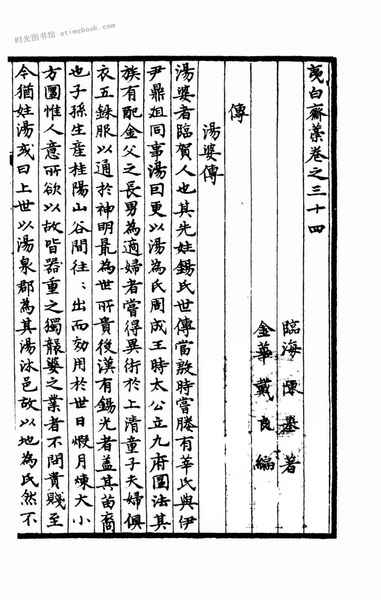 时光图书馆 etimebook.com
夷白齋藁卷之三十四
臨海陳基著
金華戴良編
傳
湯婆傳
湯婆者臨賀人也其先姓錫氏世傳當殷時嘗媵有莘氏與伊
尹鼎俎同事湯囙更以湯為氏周成王時太公立九府圜法其
族有配金父之長男為適婦者嘗得異術於上清童子夫婦俱
衣五銖服以通於神明最為世所貴後漢有錫光者盖其苗裔
也子孫生産桂陽山谷間往〻出而効用於世日煆月煉大小
方圓惟人意所欲以故皆器重之獨襲婆之業者不問貴賤至
今猶姓湯或曰上世以湯泉郡為其湯沐邑故以地為氏然不